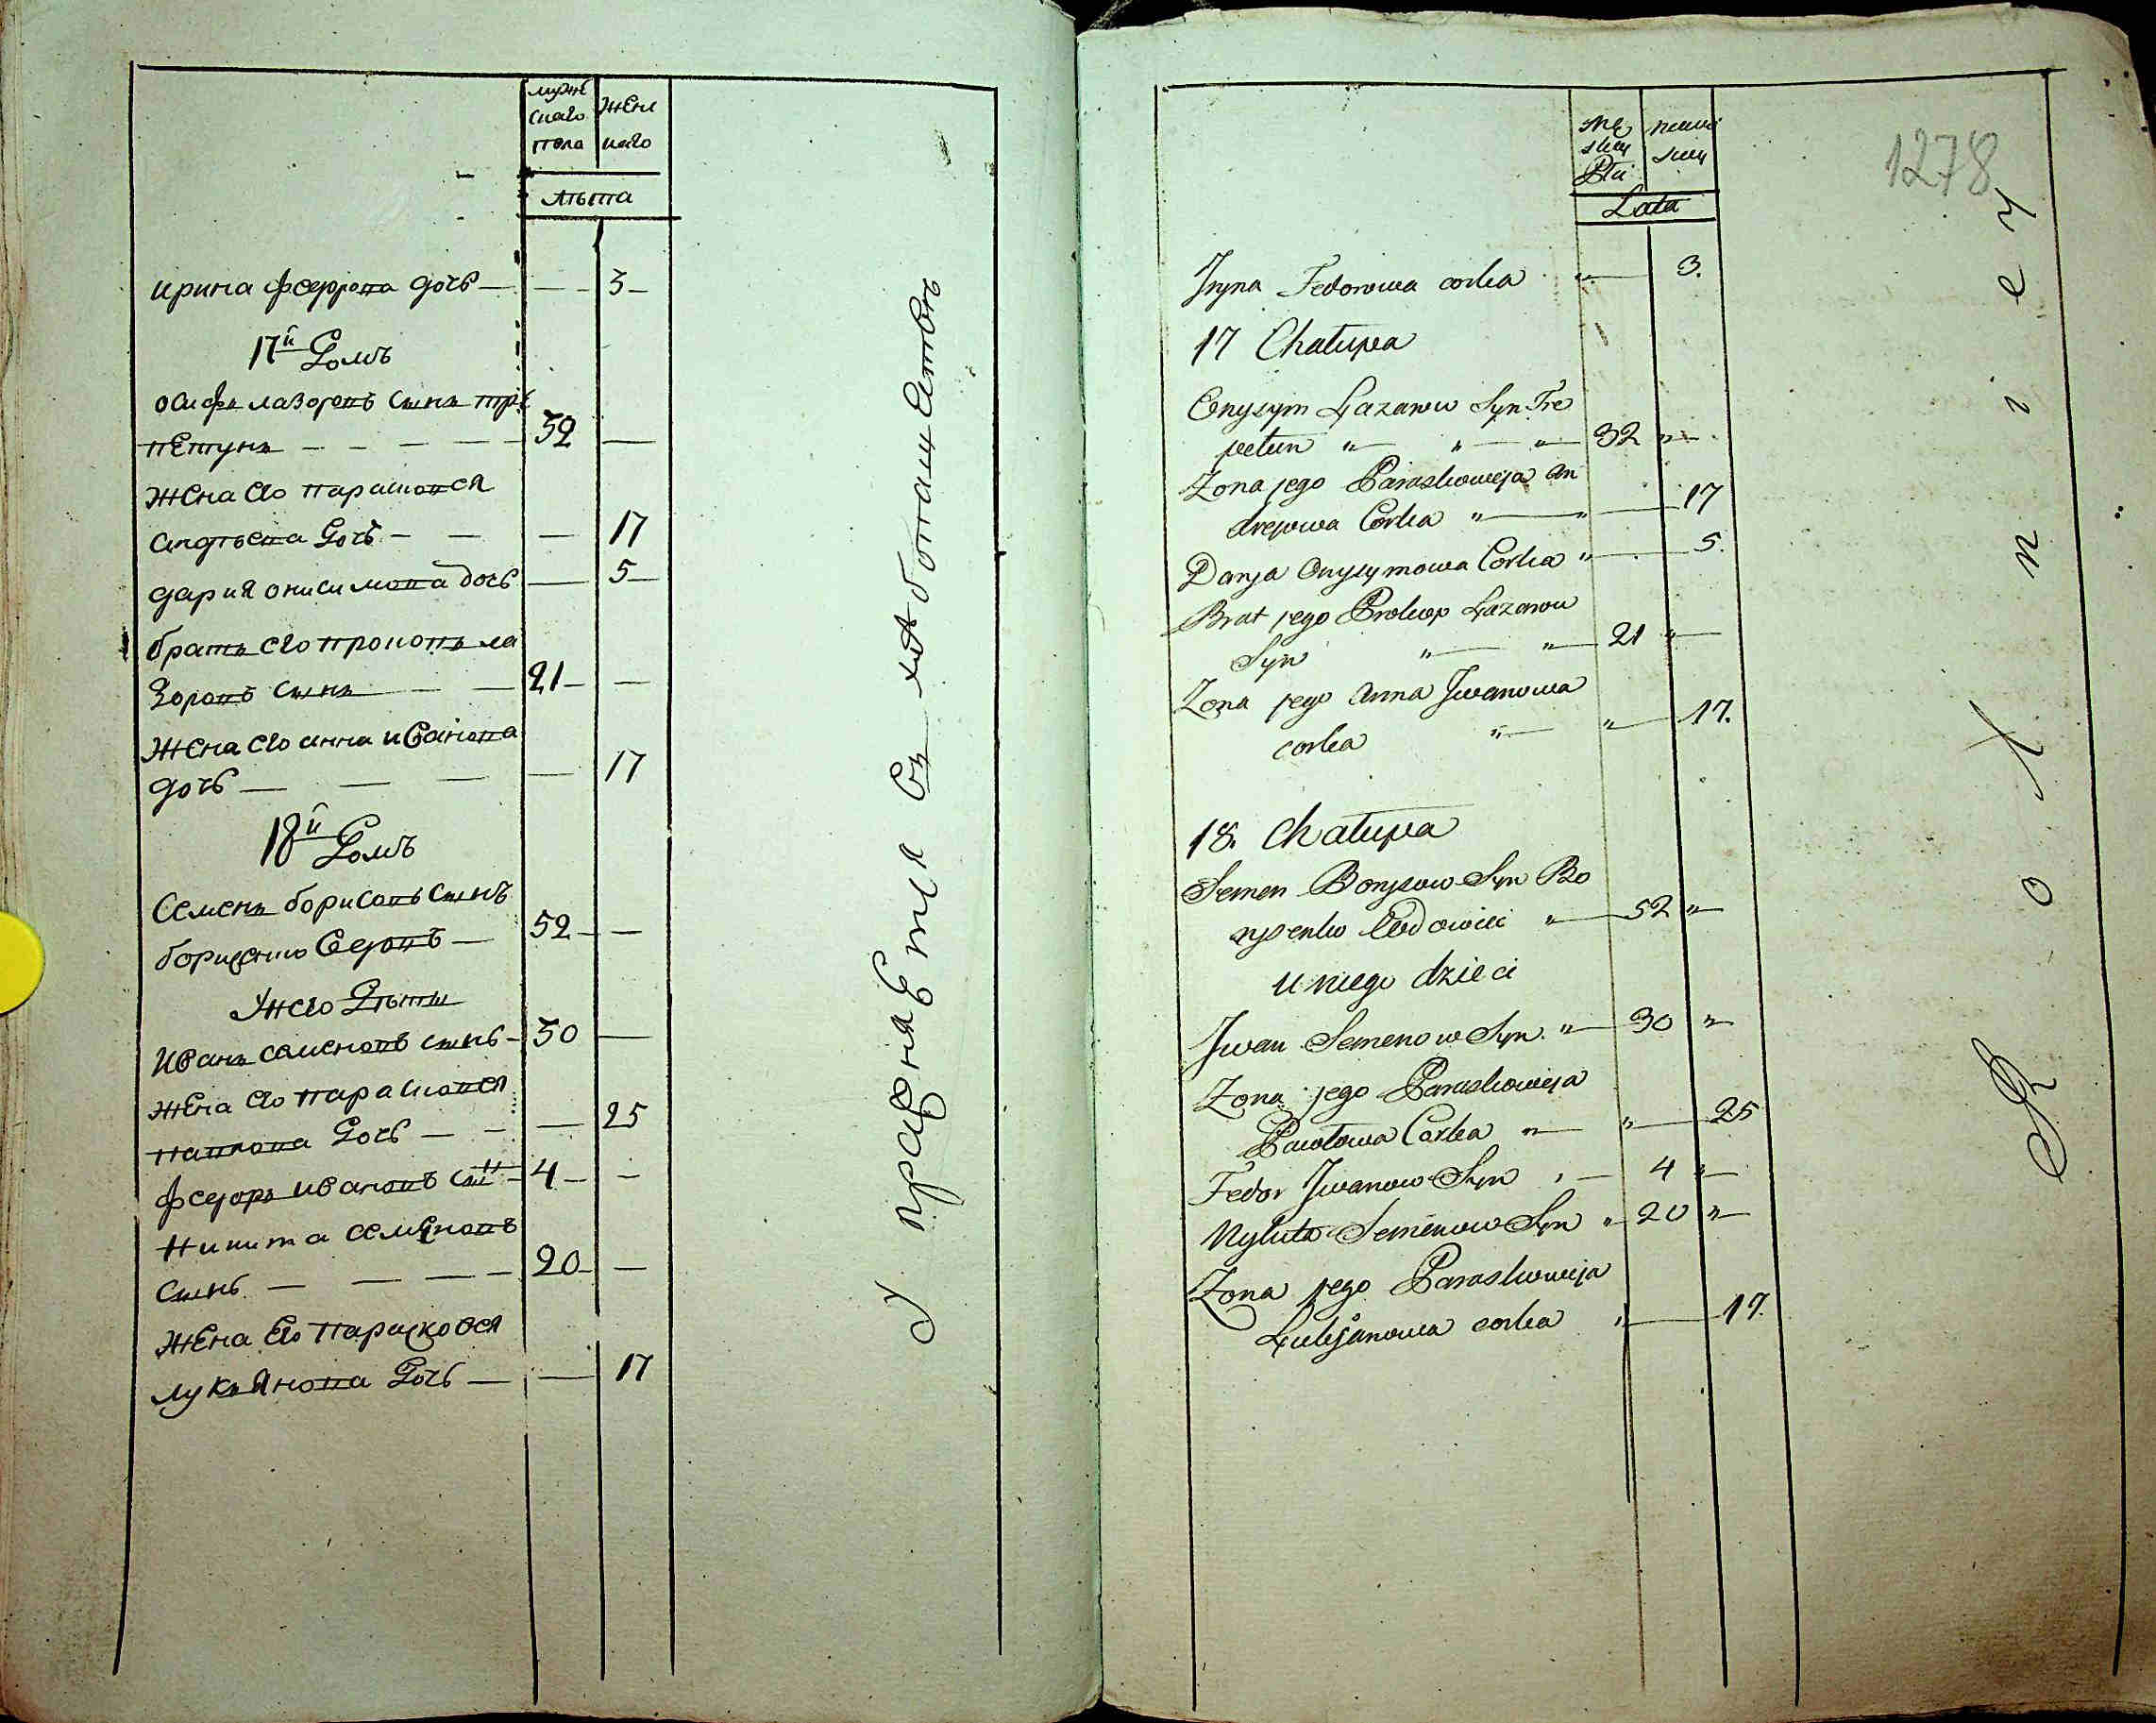 мужескаго пола
женскаго
лѣта
ирина федорова дочь — — 3 —
17й Домъ
Лазоровъ сынъ тре
петунъ — — — — 32 —
жена его парасковея
андрѣева дочь — — — 17
дария онисимова дочь — 5 —
братъ его прокопъ ла
зоровъ сынъ — — 21 — —
жена его анна иванова
дочь — — — — 17
18й Домъ
семенъ борисовъ сынъ
борисенко вдовъ — 52 — —
У него дѣти
иванъ семеновъ сынъ — 30 —
жена его парасковея
павлова дочь — — — 25
федоръ ивановъ сынъ — 4 — —
никита семеновъ
сынъ — — — — 20 — —
жена его парасковея
лукянова дочь — — 17
У праздняется въ
męskiej płci
Lata
1278
Jryna Fedorowa corka " — 3.
17 Chałupa
Onysym Łazarow Syn Tre
petun " — " — " — 32 " —
Zona jego Paraskoweja An
drejowa Corka " — " — 17
Darja Onysymowa Corka " — 5.
Brat jego Prokop Łazarow
Syn " — " — 21 " —
Zona jego Anna Jwanowa
corka " — " — 17.
18. Chałupa
Semen Borysow Syn Bo
rysenko Wdowiec " — 52 " —
u niego dzieci
Jwan Semenow Syn " — 30 " —
Zona jego Paraskoweja
Pawłowa Corka " — " — 25
Fedor Jwanow Syn " — 4 " —
Nykita Semenow Syn " 20 " —
Zona jego Paraskoweja
Łukjanowa corka " — 17.